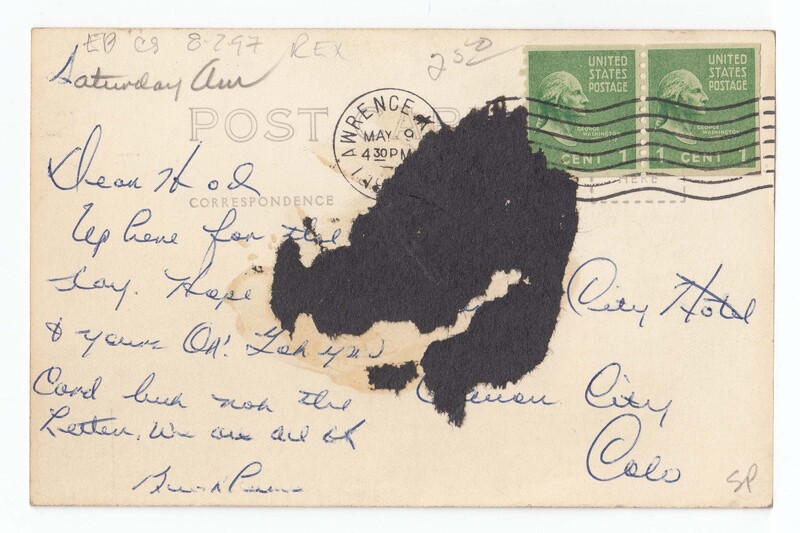 EB CS 8-297 REX
2 50
Saturday Am
UNITED STATES POSTAGE
GEORGE WASHINGTON
CENT 1
UNITED STATES POSTAGE
GEORGE WASHINGTON
1 CENT 1
POST
LAWRENCE
MAY 9
4 30 PM
HERE
CORRESPONDENCE
Dear Hod
Up here for the
day. Hope
& yours OK! Got your
Card but not the
Letter. We are all ok
City Hotel
Canon City
Colo
SP